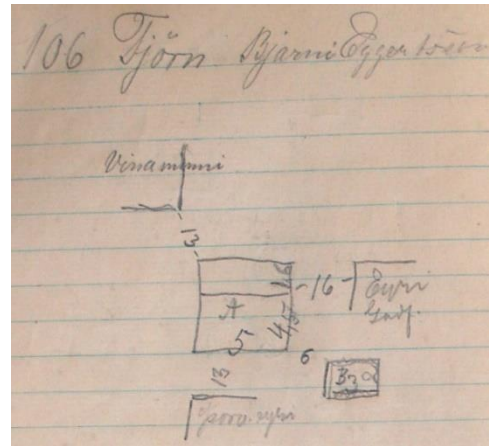 106 Tjörn Bjarni Eggertsson
Vinaminni
13
1,8
16
Eyri
A
4,5
5
6
13
B 3
2